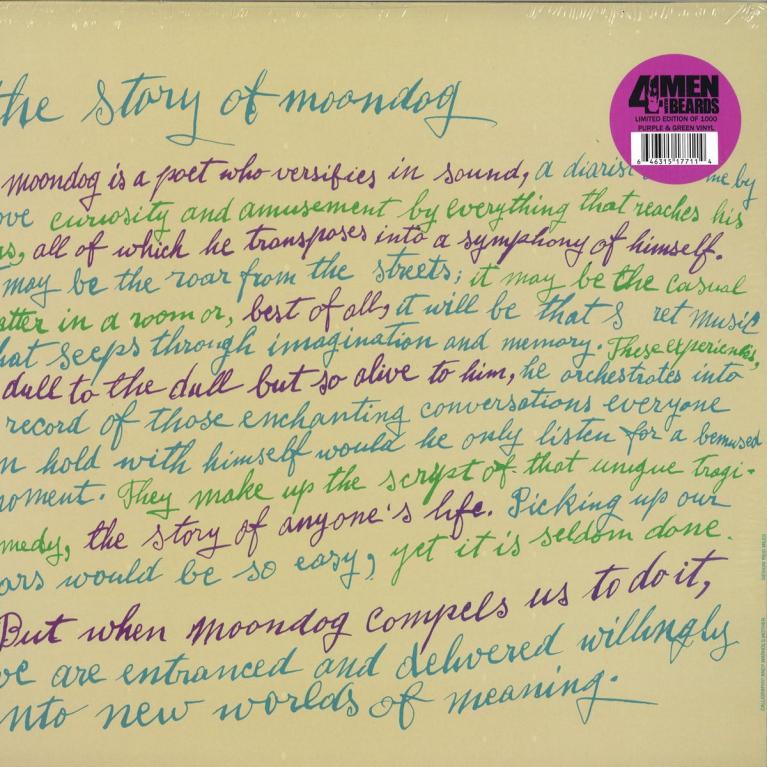 the story of moondog
4 MEN
WITH BEARDS
LIMITED EDITION OF 1000
PURPLE & GREEN VINYL
6 46315 17711 4
moondog is a poet who versifies in sound, a diaris me by
ove curiosity and amusement by everything that reaches his
rs, all of which he transposes into a symphony of himself.
may be the roar from the streets; it may be the casual
atter in a room or, best of all, it will be that s ret music
hat seeps through imagination and memory. These experiences,
dull to the dull but so alive to him, he orchestrates into
record of those enchanting conversations everyone
n hold with himself would he only listen for a bemused
noment. They make up the script of that unique tragi-
medy, the story of anyone's life. Picking up our
ars would be so easy, yet it is seldom done.
But when moondog compels us to do it,
ve are entranced and delivered willingly
nto new worlds of meaning.